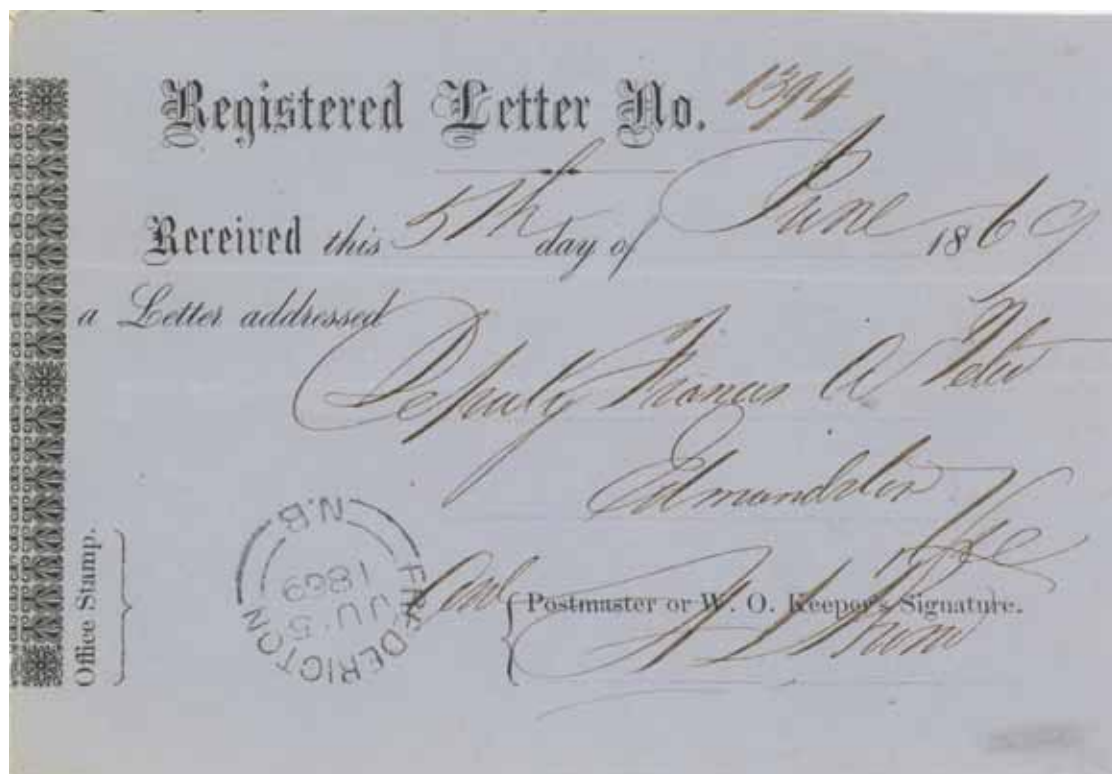 Registered Letter No. 1394
Received this 5th day of June 1869
a Letter addressed
Deputy Francis A
Edmundston
Office Stamp.
FREDERICTON N.B.
JU 5
1869
Postmaster or W. O. Keeper's Signature.